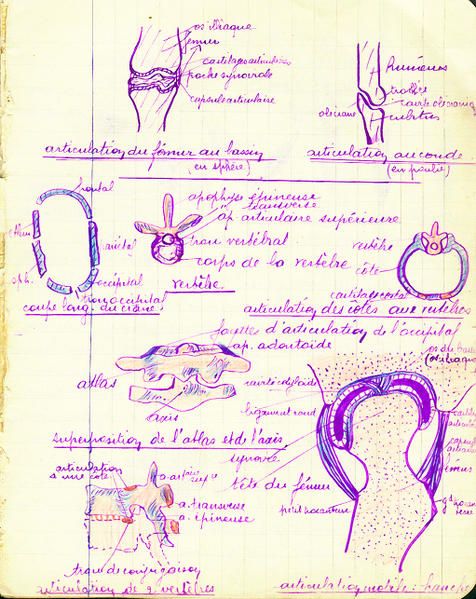 os iliaque
fémur
cartilages articulaires
poche synoviale
capsule articulaire
articulation du fémur au bassin
(en sphère)
Humérus
trochlée
cavité olécranienne
olécrane
cubitus
articulation au coude
(en poulie)
frontal
pariétal
sph.
occipital
trou occipital
coupe long. du crâne
apophyse épineuse
transverse
ap. articulaire supérieure
trou vertébral
corps de la vertèbre
vertèbre
vertèbre
côte
cartilage costal
articulation des côtes aux vertèbres
facettes d'articulation de l'occipital
ap. odontoïde
atlas
axis
superposition de l'atlas et de l'axis
os du bassin
(os iliaque)
cavité cotyloïde
ligament rond
synovie
tête du fémur
petit trocanter
fémur
articulation
à une côte
a. transverse
a. épineuse
trou de conjugaison
articulation de 2 vertèbres
articulation mobile : hanche